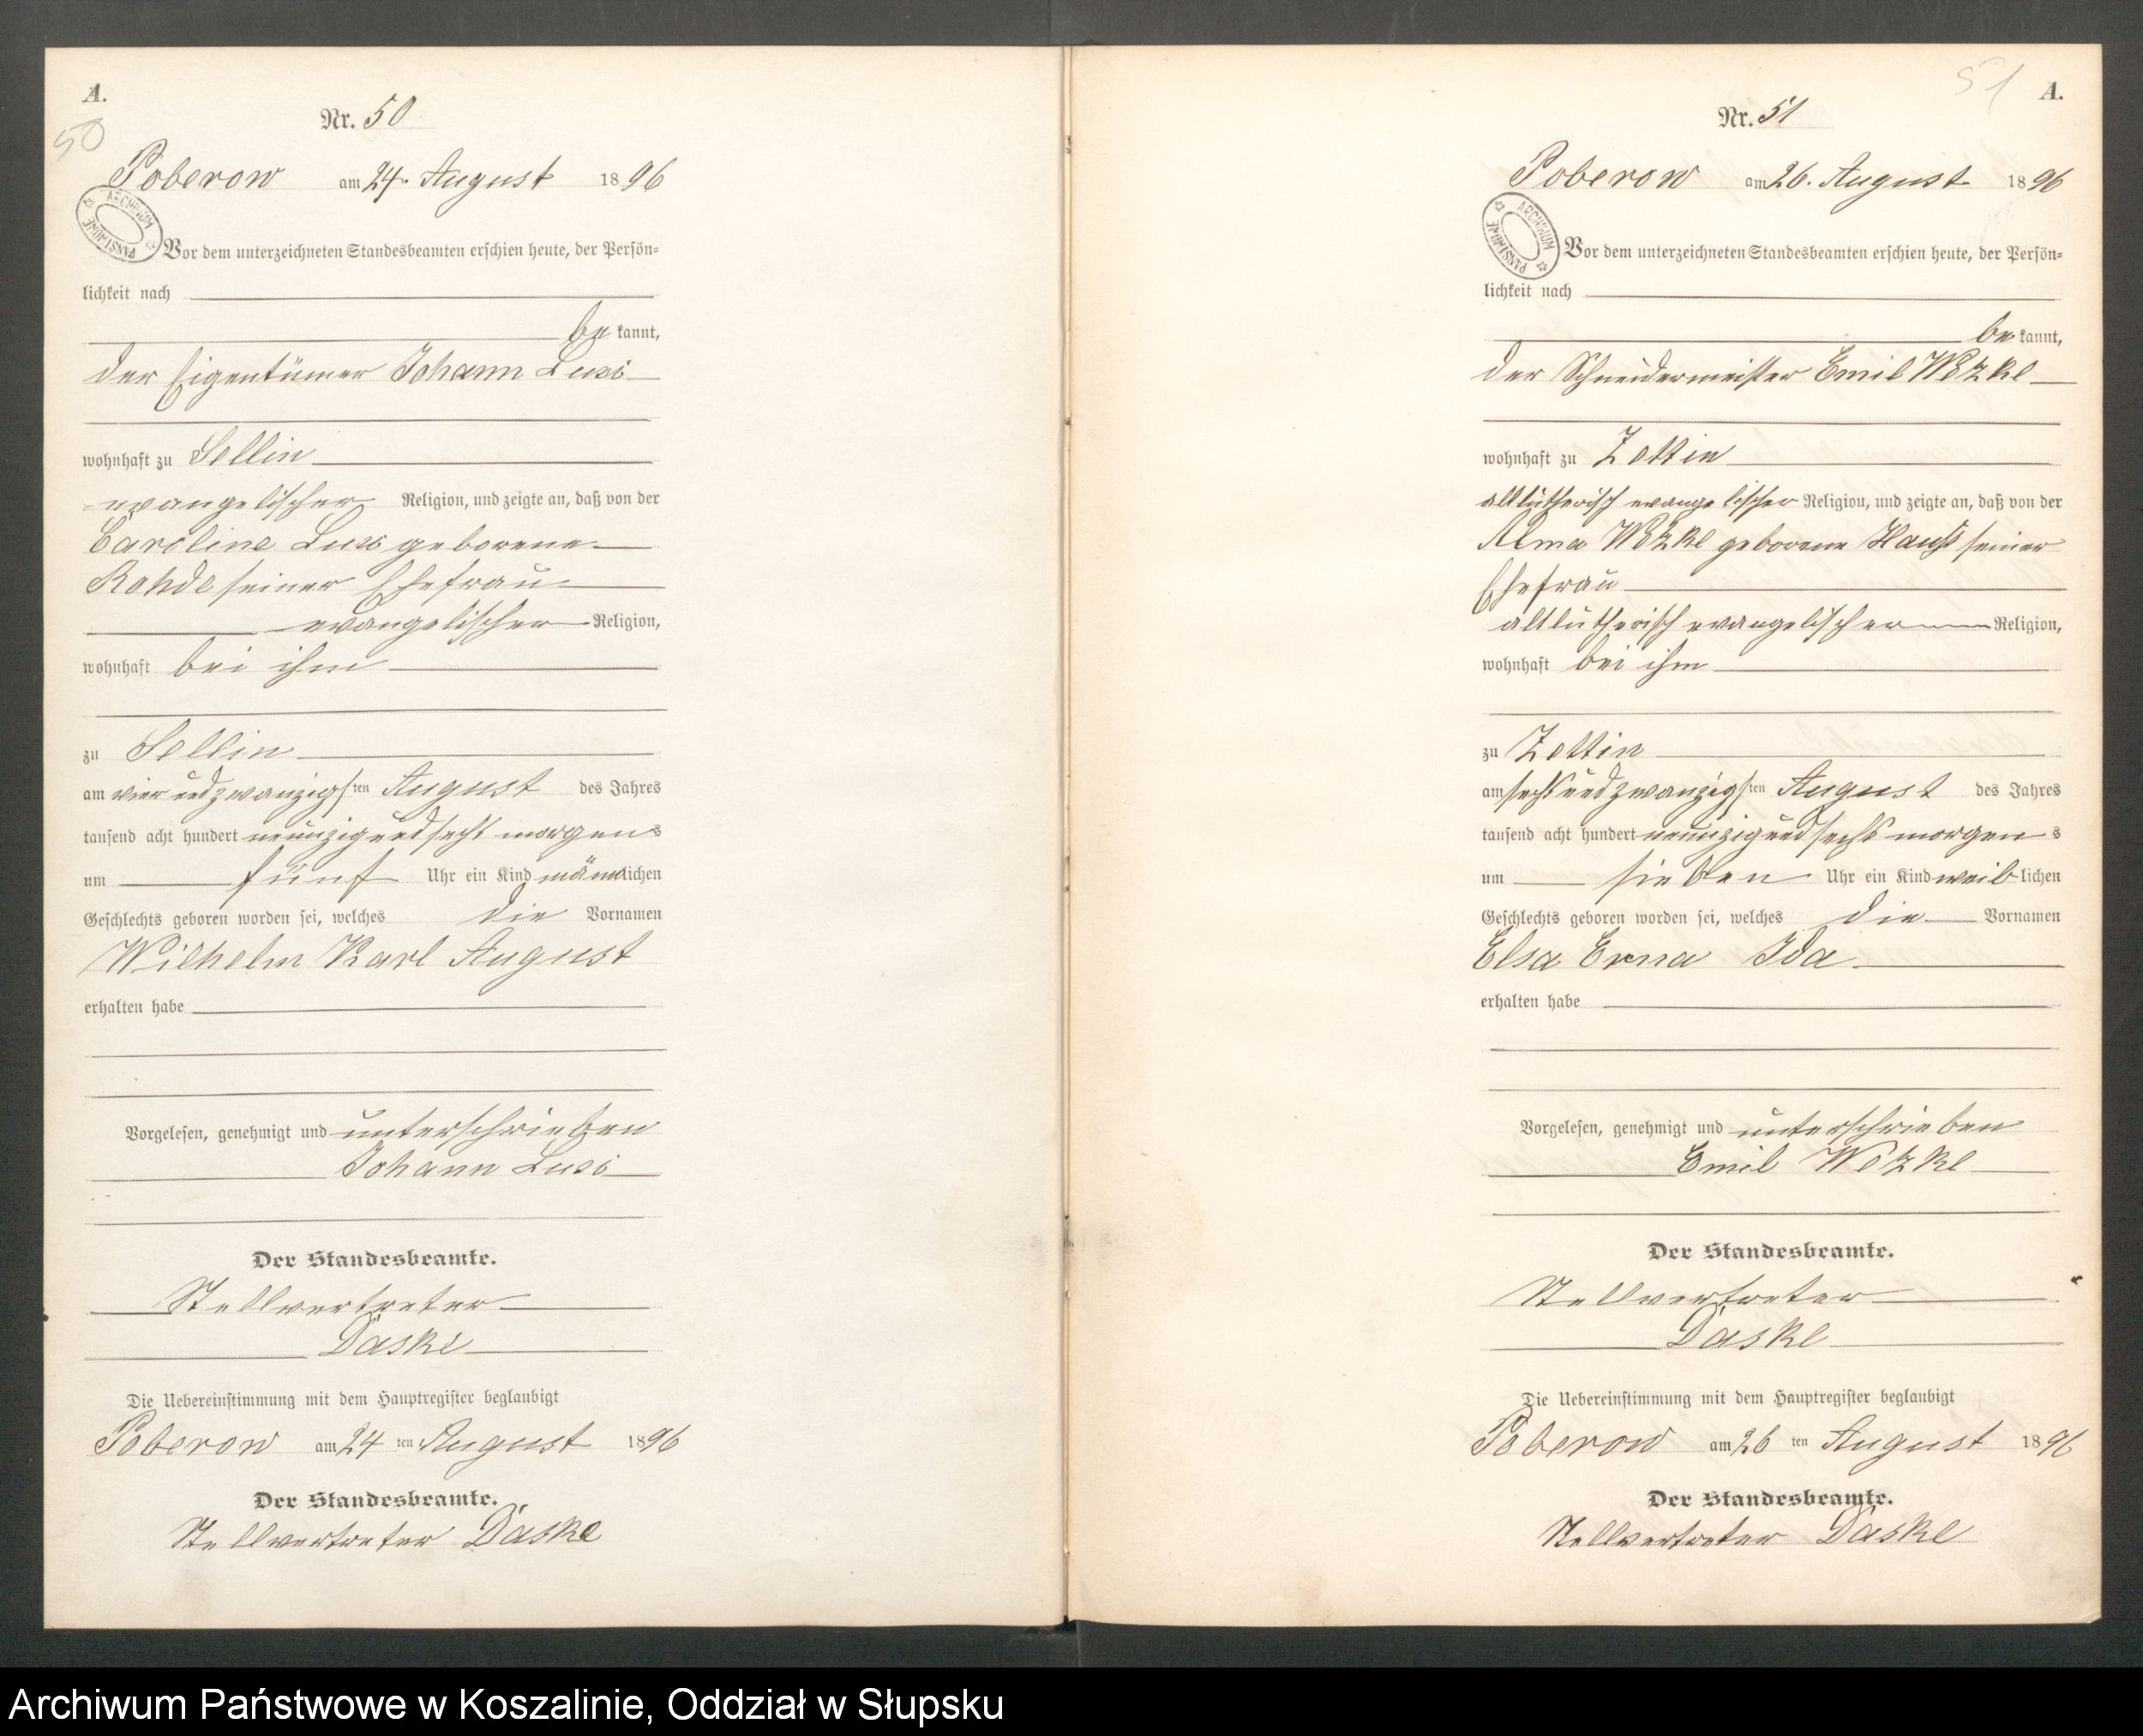 A.
50
Nr. 50
Poberow am 24. August 1896
ARCHIWUM PAŃSTWOWE
Vor dem unterzeichneten Standesbeamten erschien heute, der Persön=
lichkeit nach
be kannt,
der Eigentümer Johann
wohnhaft zu Sellin
evangelischer Religion, und zeigte an, daß von der
Caroline geborene
Rohde seiner Ehefrau
evangelischer Religion,
wohnhaft bei ihm
zu Sellin
am vier und zwanzigsten August des Jahres
tausend acht hundert neunzig und sechs morgens
um fünf Uhr ein Kind männlichen
Geschlechts geboren worden sei, welches die Vornamen
Wilhelm Karl August
erhalten habe
Vorgelesen, genehmigt und unterschrieben
Johann
Der Standesbeamte.
Stellvertreter
Daske
Die Uebereinstimmung mit dem Hauptregister beglaubigt
Poberow am 24 ten August 1896
Der Standesbeamte.
Stellvertreter Daske
51
A.
Nr. 51
Poberow am 26. August 1896
ARCHIWUM PAŃSTWOWE
Vor dem unterzeichneten Standesbeamten erschien heute, der Persön=
lichkeit nach
be kannt,
der Schneidermeister Emil Wetzke
wohnhaft zu Zettin
altlutherisch evangelischer Religion, und zeigte an, daß von der
Alma Wetzke geborene seiner
Ehefrau
altlutherisch evangelischer Religion,
wohnhaft bei ihm
zu Zettin
am sechs und zwanzigsten August des Jahres
tausend acht hundert neunzig und sechs morgens
um sieben Uhr ein Kind weiblichen
Geschlechts geboren worden sei, welches die Vornamen
Elsa Erna Ida
erhalten habe
Vorgelesen, genehmigt und unterschrieben
Emil Wetzke
Der Standesbeamte.
Stellvertreter
Daske
Die Uebereinstimmung mit dem Hauptregister beglaubigt
Poberow am 26 ten August 1896
Der Standesbeamte.
Stellvertreter Daske
Archiwum Państwowe w Koszalinie, Oddział w Słupsku